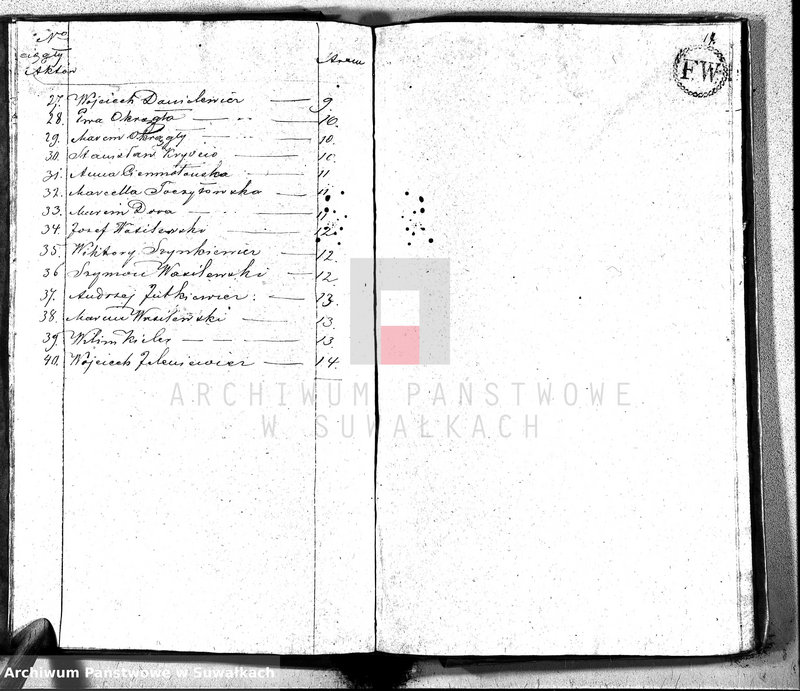 No
ciągły
Aktów
Arku
27. Wojciech Danilewicz 9.
28. Ewa Okrągła 10.
29. Marcin Okrągły 10.
30. Stanisław Krywcio 10.
31. Anna 11
32. Marcella Toczyłowska 11
33. Marcin Dora 11
34. Jozef Wasilewski 12
35. Wiktory Szynkiewicz 12.
36 Szymon Wasilewski 12.
37. Andrzej Jutkiewicz: 13.
38. Marcin Wasilewski 13.
39. 13.
40. Wojciech 14.
FW
ARCHIWUM PAŃSTWOWE
W SUWAŁKACH
Archiwum Państwowe w Suwałkach